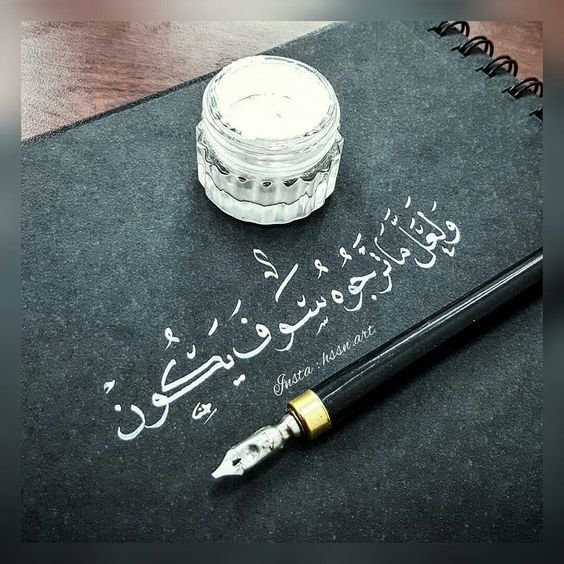 وَلَعَلَّ مَا تَرجُوه سَوفَ يَكُون
Insta : hssn.art